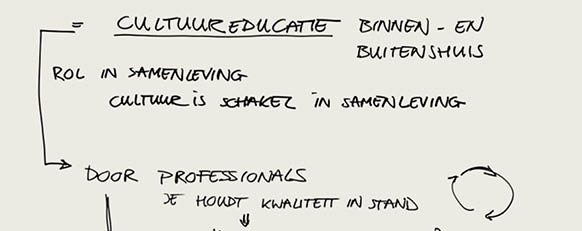 = CULTUUREDUCATIE BINNEN - EN
BUITENSHUIS
ROL IN SAMENLEVING
CULTUUR IS SCHAKEL IN SAMENLEVING
DOOR PROFESSIONALS
JE HOUDT KWALITEIT IN STAND